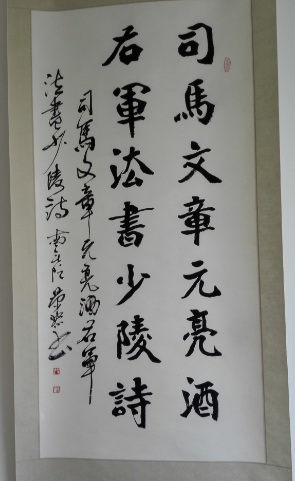 司馬文章元亮酒
右軍法書少陵詩
司馬文章元亮酒右軍
法書少陵詩